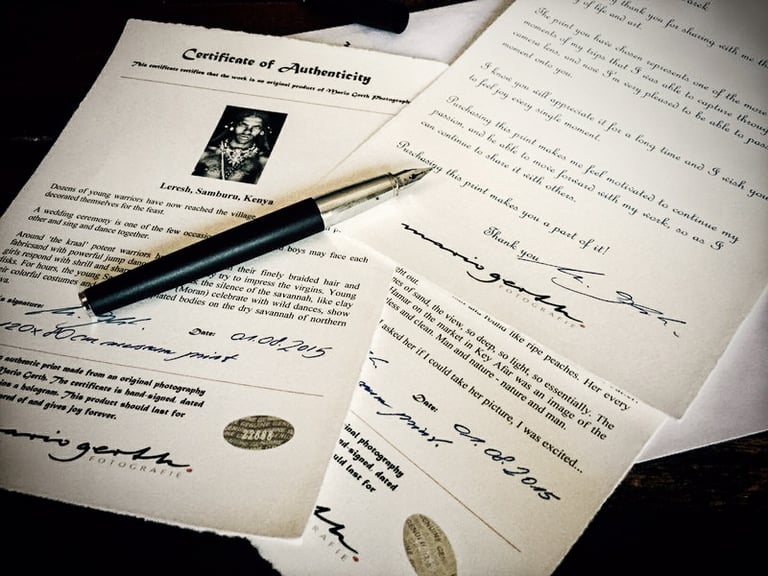 Certificate of Authenticity
This certificate certifies that the work is an original product of Mario Gerth Photography
Leresh, Samburu, Kenya
Dozens of young warriors have now reached the village
decorated themselves for the feast.
A wedding ceremony is one of the few occasi boys may face each
other and sing and dance together.
Around 'the kraal' potent warriors h their finely braided hair and
fabricsand with powerful jump danc try to impress the virgins. Young
girls respond with shrill and sharp k the silence of the savannah, like clay
disks. For hours, the young S (Moran) celebrate with wild dances, show
their colorful costumes and ated bodies on the dry savannah of northern
signature:
Date: 01.08.2015
120x80cm museum print
authentic print made from an original photography
Gerth. The certificate is hand-signed, dated
a hologram. This product should last for
of and gives joy forever.
22888
mario gerth.
FOTOGRAFIE
thank you for sharing with me th
of life and art.
The print you have chosen represents one of the more
moments of my trips that I was able to capture throug
camera lens, and now I'm very pleased to be able to pass
moment onto you.
I know you will appreciate it for a long time and I wish you
to feel joy every single moment.
Purchasing this print makes me feel motivated to continue my
passion, and be able to move forward with my work, so as I
can continue to share it with others.
Purchasing this print makes you a part of it!
Thank you
mario gerth.
FOTOGRAFIE
ght out.
like ripe peaches. Her every
es of sand, the view, so deep, so light, so essentially. The
Hamar on the market in Key Afar was an image of the
less and clean. Man and nature - nature and man.
asked her if I could take her picture, I was excited...
Date: 01.08.2015
print.
inal photography
d-signed, dated
uld last for
rth.
FIE